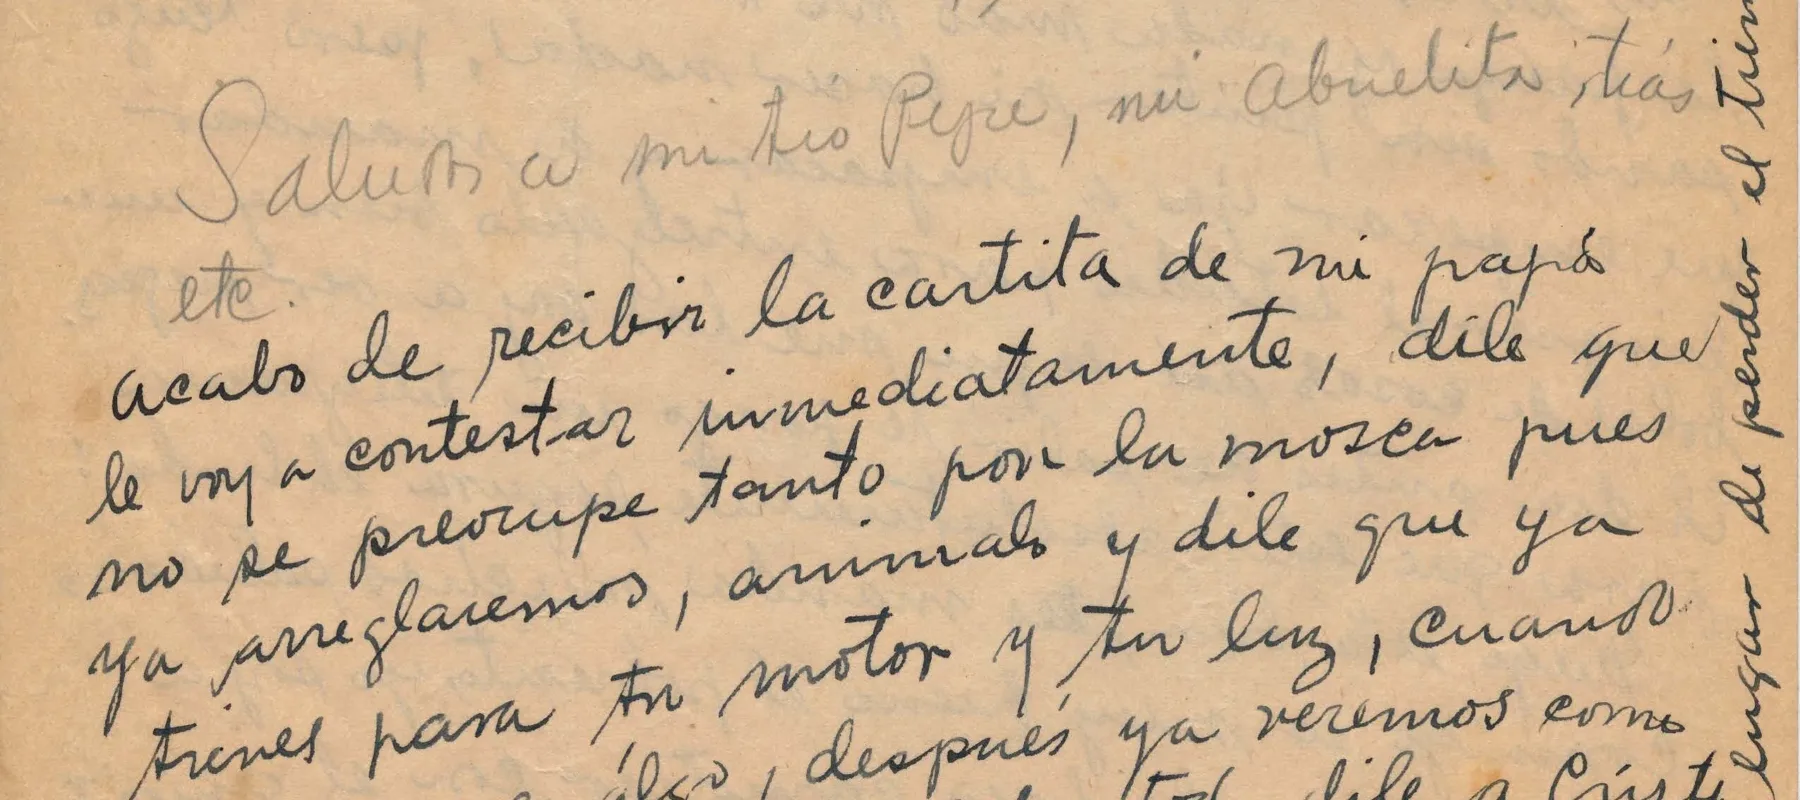 Saludos a mi tio Pepe, mi Abuelita, tiás
etc.
acabo de recibir la cartita de mi papá
le voy a contestar inmediatamente, dile que
no se preocupe tanto por la mosca pues
ya arreglaremos, animalo y dile que ya
tienes para tu motor y tu luz, cuando
algo, después ya veremos como
dile a
lugar de perder el